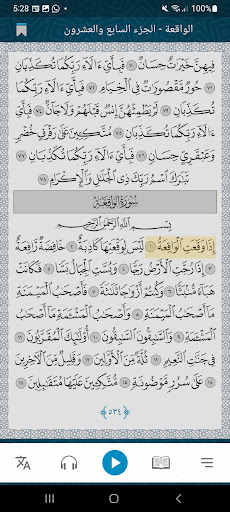 5:28 91%
الواقعة - الجزء السابع والعشرون
فِيهِنَّ خَيْرَٰتٌ حِسَانٌ ٧٠ فَبِأَيِّ ءَالَآءِ رَبِّكُمَا تُكَذِّبَانِ
٧١ حُورٌ مَّقْصُورَٰتٌ فِي ٱلْخِيَامِ ٧٢ فَبِأَيِّ ءَالَآءِ رَبِّكُمَا
تُكَذِّبَانِ ٧٣ لَمْ يَطْمِثْهُنَّ إِنسٌ قَبْلَهُمْ وَلَا جَآنٌّ ٧٤ فَبِأَيِّ
ءَالَآءِ رَبِّكُمَا تُكَذِّبَانِ ٧٥ مُتَّكِـِٔينَ عَلَىٰ رَفْرَفٍ خُضْرٍ
وَعَبْقَرِيٍّ حِسَانٍ ٧٦ فَبِأَيِّ ءَالَآءِ رَبِّكُمَا تُكَذِّبَانِ ٧٧
تَبَٰرَكَ ٱسْمُ رَبِّكَ ذِي ٱلْجَلَٰلِ وَٱلْإِكْرَامِ ٧٨
سُورَةُ الوَاقِعَةِ
بِسْمِ ٱللَّهِ ٱلرَّحْمَٰنِ ٱلرَّحِيمِ
إِذَا وَقَعَتِ ٱلْوَاقِعَةُ ١ لَيْسَ لِوَقْعَتِهَا كَاذِبَةٌ ٢ خَافِضَةٌ رَّافِعَةٌ
٣ إِذَا رُجَّتِ ٱلْأَرْضُ رَجًّا ٤ وَبُسَّتِ ٱلْجِبَالُ بَسًّا ٥ فَكَانَتْ
هَبَآءً مُّنۢبَثًّا ٦ وَكُنتُمْ أَزْوَٰجًا ثَلَٰثَةً ٧ فَأَصْحَٰبُ ٱلْمَيْمَنَةِ
مَآ أَصْحَٰبُ ٱلْمَيْمَنَةِ ٨ وَأَصْحَٰبُ ٱلْمَشْـَٔمَةِ مَآ أَصْحَٰبُ
ٱلْمَشْـَٔمَةِ ٩ وَٱلسَّٰبِقُونَ ٱلسَّٰبِقُونَ ١٠ أُو۟لَٰٓئِكَ ٱلْمُقَرَّبُونَ ١١
فِي جَنَّٰتِ ٱلنَّعِيمِ ١٢ ثُلَّةٌ مِّنَ ٱلْأَوَّلِينَ ١٣ وَقَلِيلٌ مِّنَ ٱلْءَاخِرِينَ
١٤ عَلَىٰ سُرُرٍ مَّوْضُونَةٍ ١٥ مُّتَّكِـِٔينَ عَلَيْهَا مُتَقَٰبِلِينَ ١٦
٥٣٤